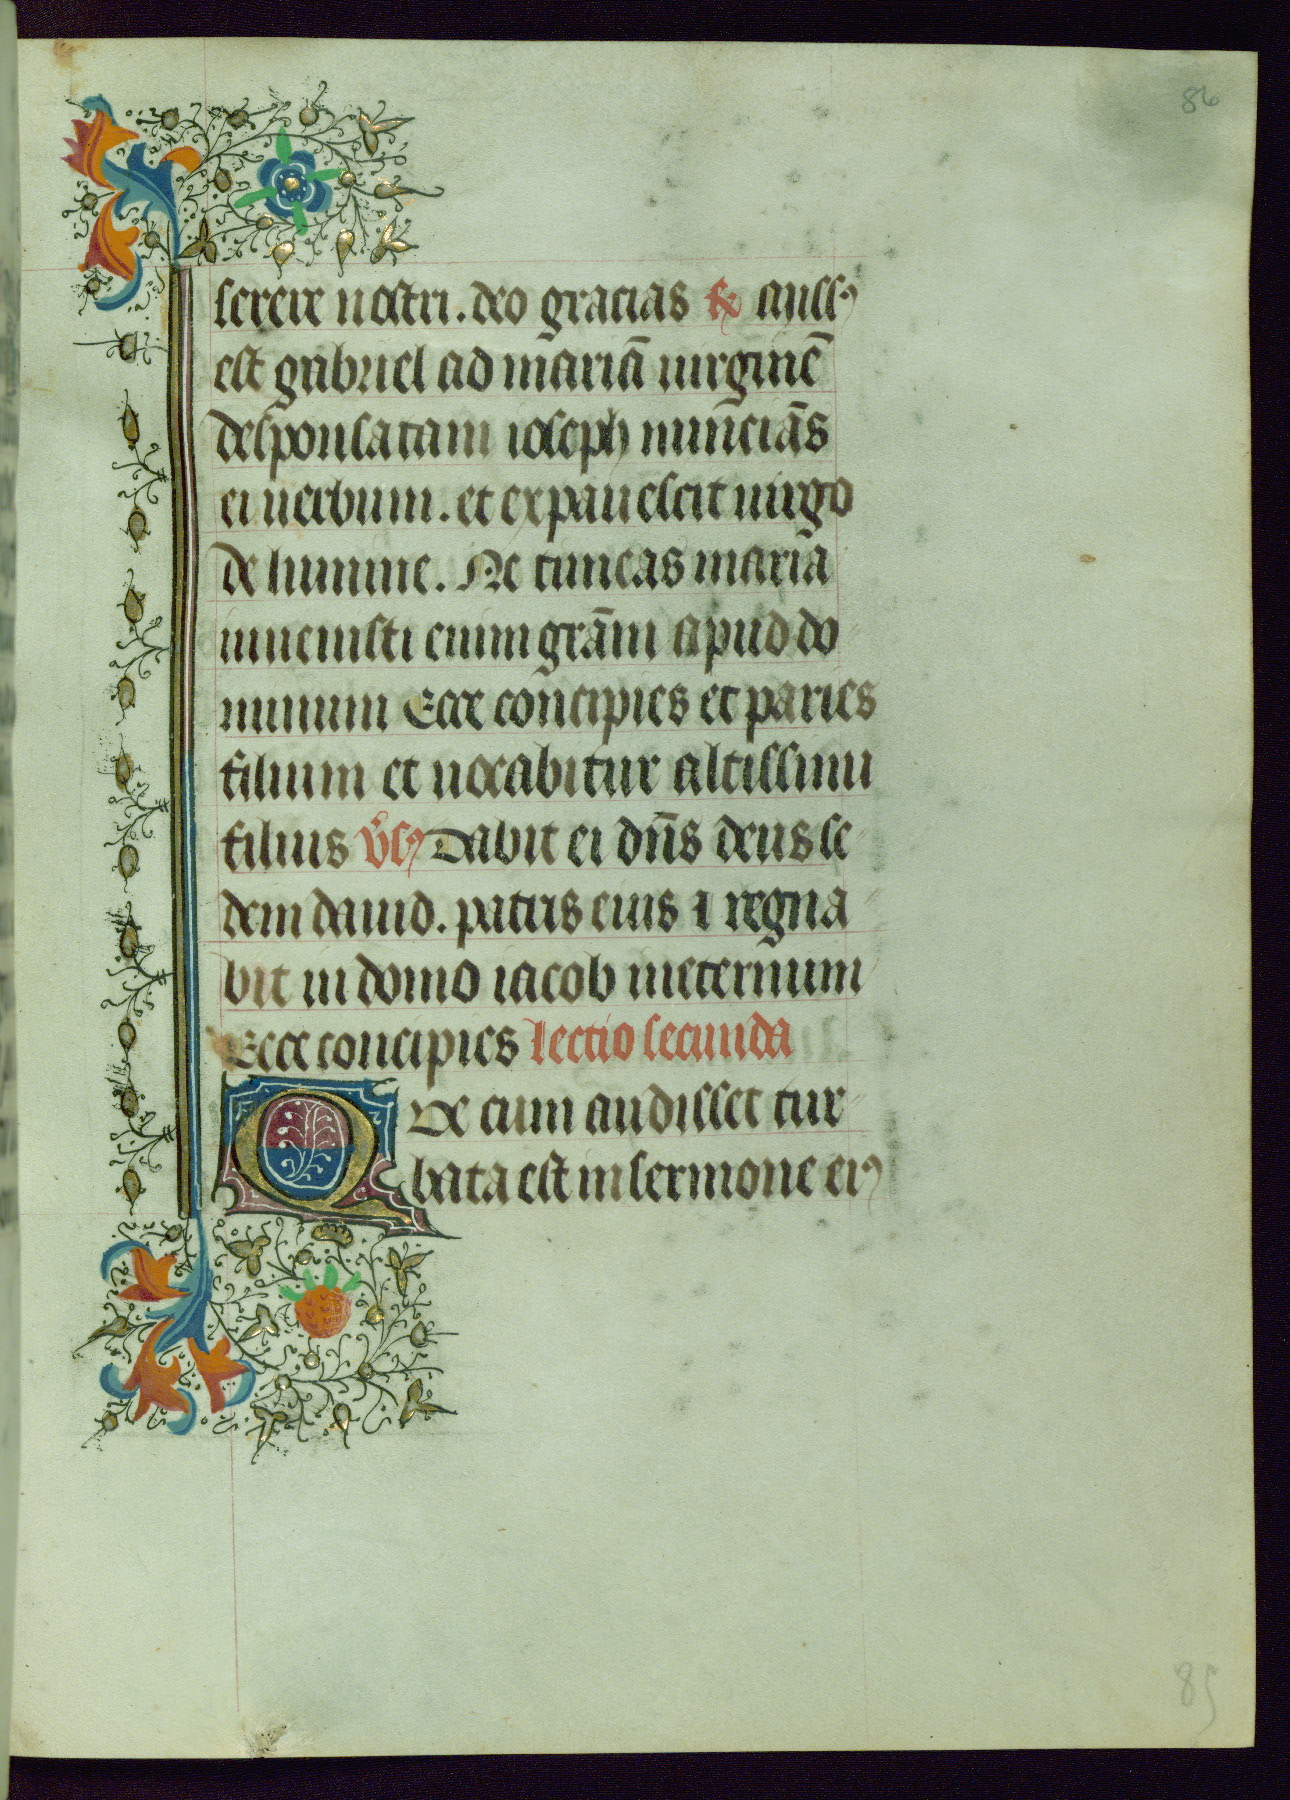 86
serere nostri. deo gracias R miss9
est gabriel ad mariā uirginē
desponsatam ioseph nun̄ciās
ei uerbum. et expauescit uirgo
de lumine. Ne timeas maria
inuenisti enim grām apud do
minum Ecce concipies et paries
filium et uocabitur altissimi
filius v̊s9 Dabit ei dn̄s deus se
dem dauid. patris eius ⁊ regna
bit in domo iacob ineternum
Ecce concipies lectio secunda
Que cum audisset tur
bata est in sermone ei9
85